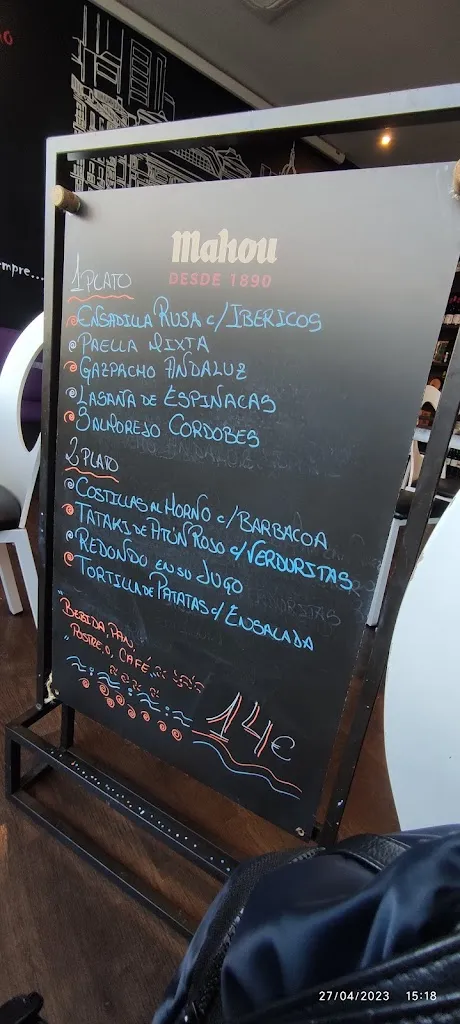 mpre...
Mahou
DESDE 1890
1 PLATO
ENSADILLA RUSA c/IBERICOS
PAELLA MIXTA
GAZPACHO ANDALUZ
LASAÑA DE ESPINACAS
SALMOREJO CORDOBES
2 PLATO
COSTILLAS AL HORNO c/BARBACOA
TATAKI DE ATÚN ROJO c/VERDURITAS
REDONDO EN SU JUGO
TORTILLA DE PATATAS c/ENSALADA
"BEBIDA, PAN,
POSTRE, O, CAFÉ"
14€
27/04/2023 15:18